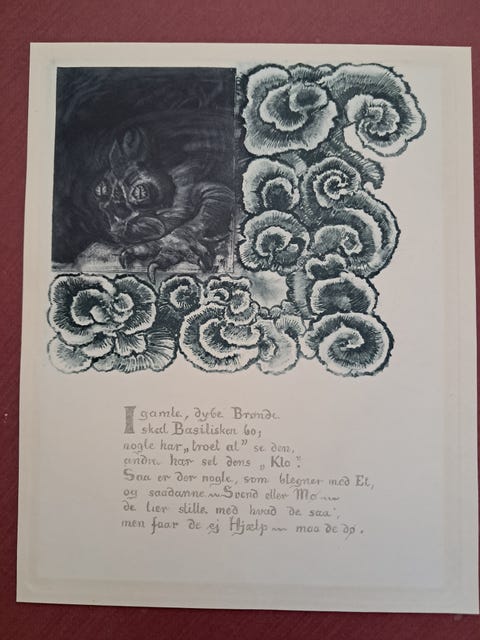 I gamle, dybe Brønde
skal Basilisken bo;
nogle har „troet at” se den,
andre har set dens „Klo”.
Saa er der nogle, som blegner med Et,
og saadanne ~ Svend eller Mø ~
de tier stille med hvad de saa',
men faar de ej Hjælp ~ maa de dø.